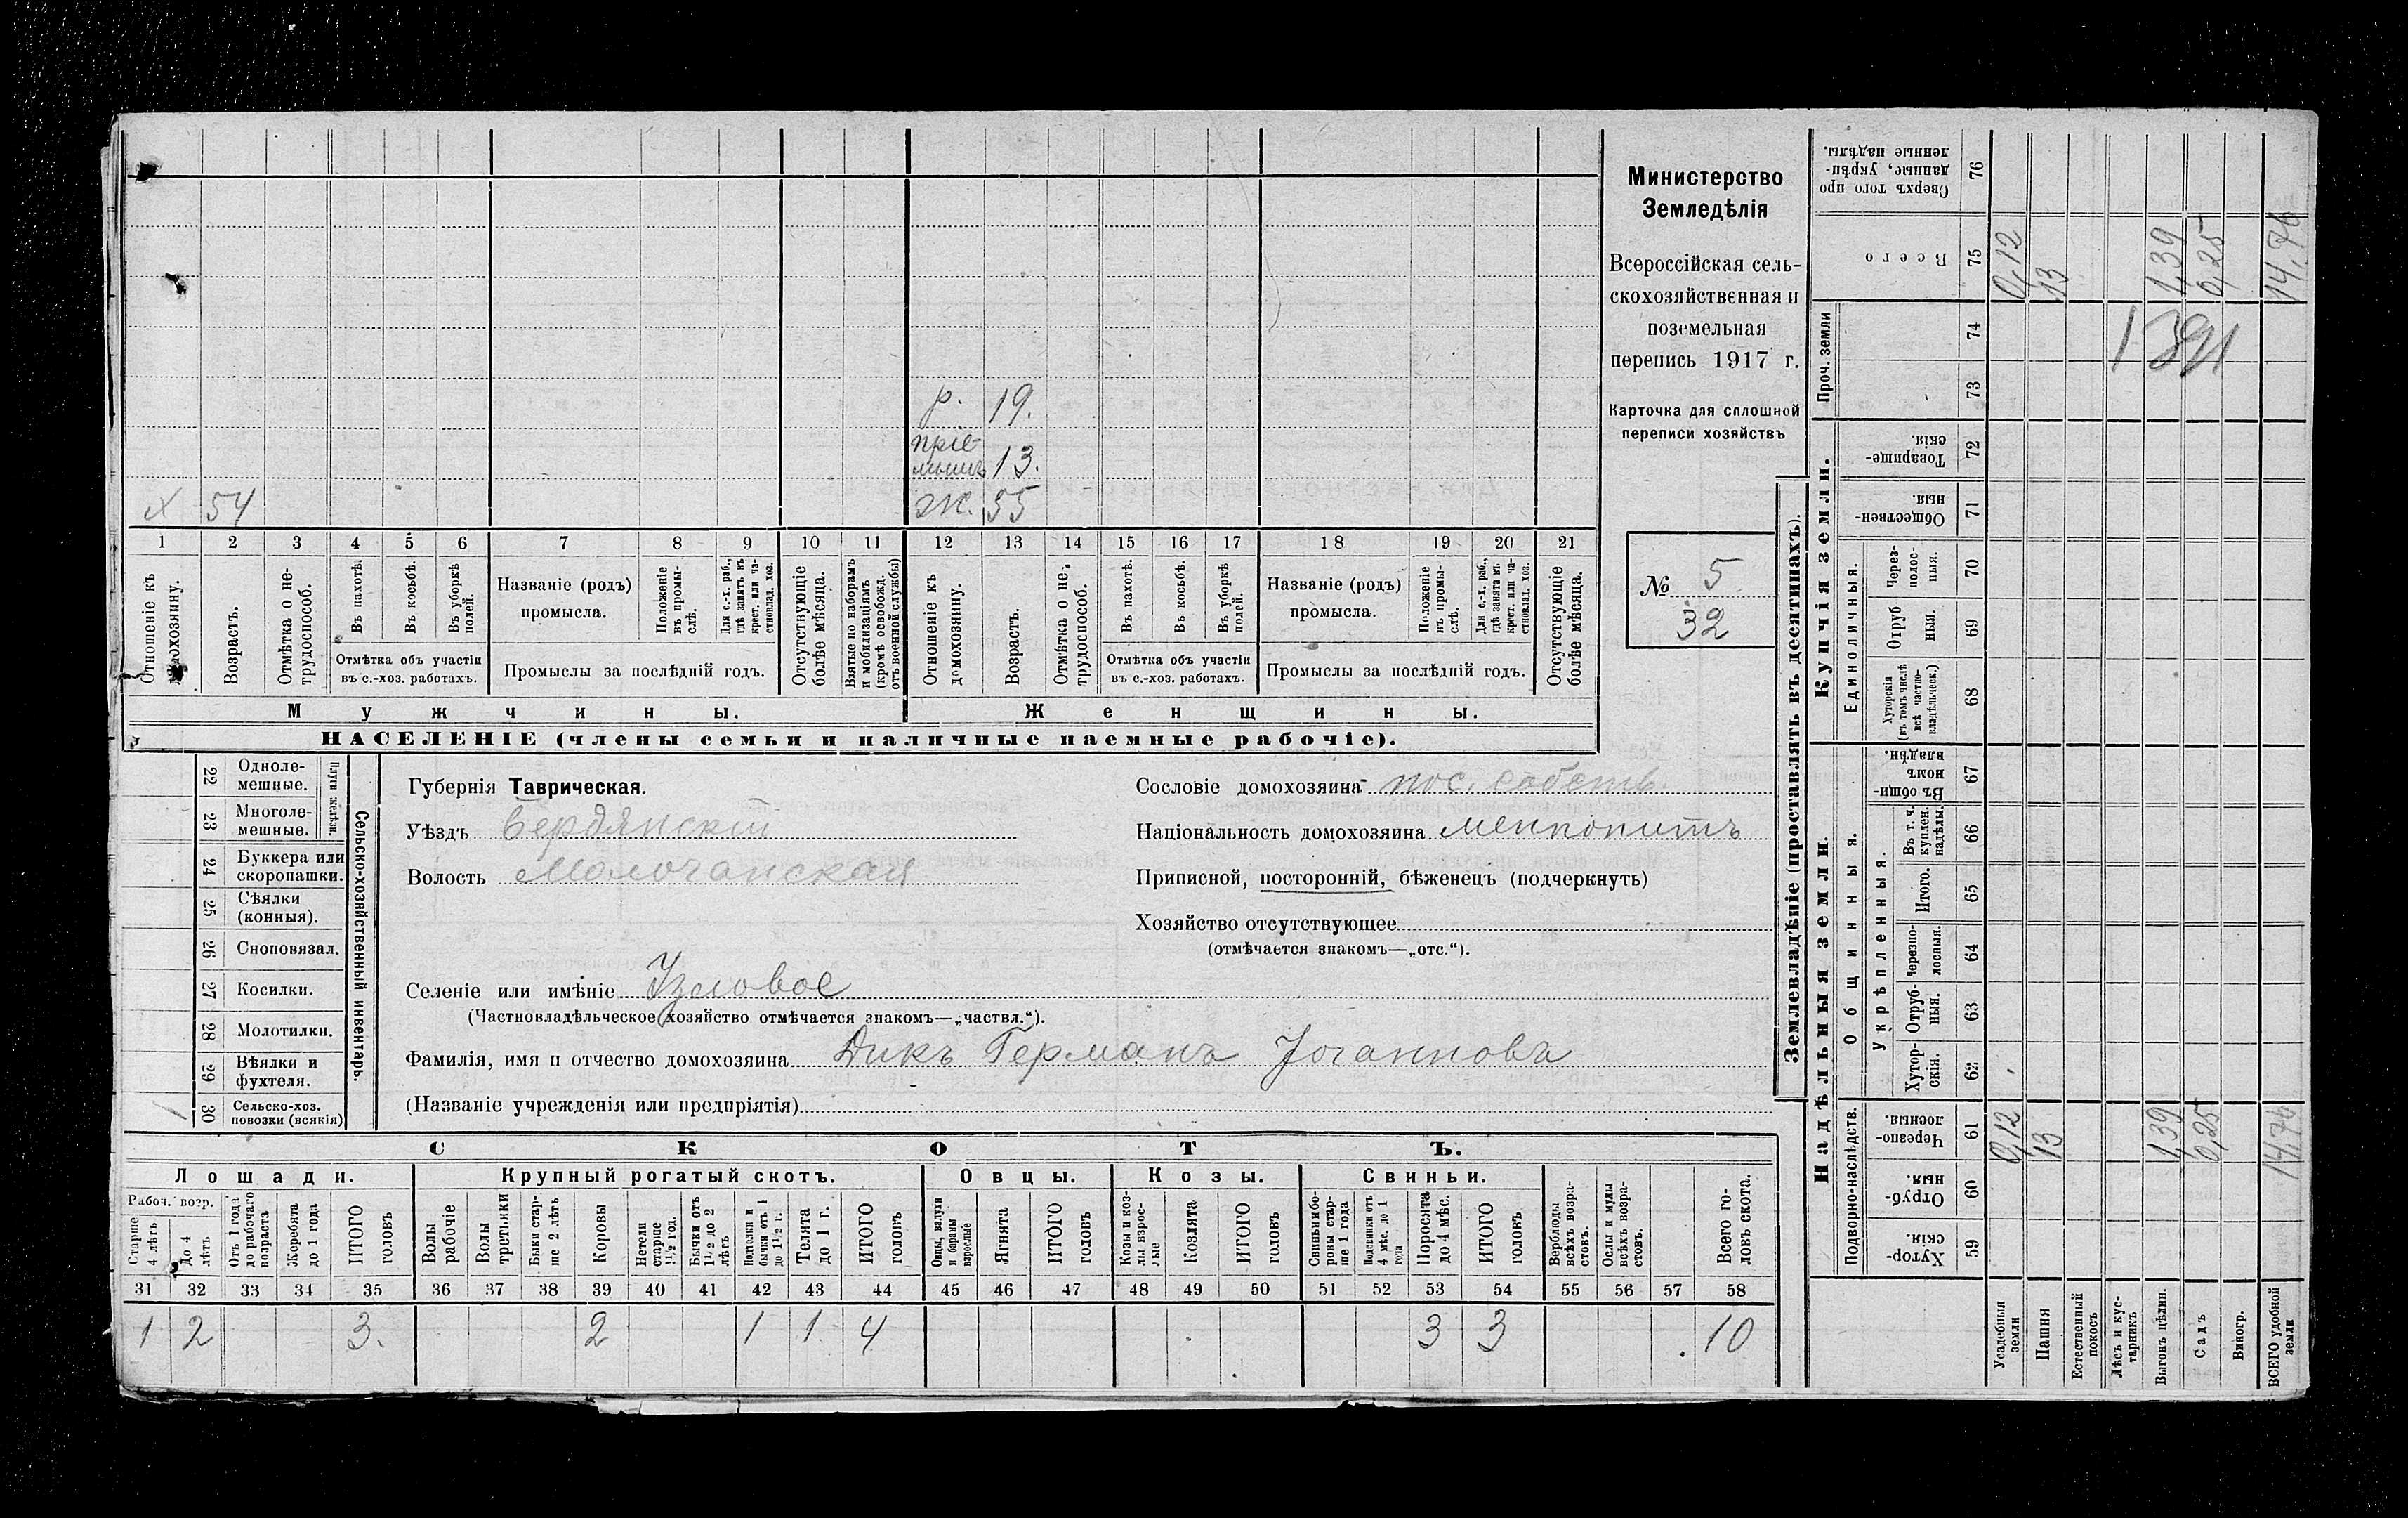 р. 19.
пріе-
мышъ 13.
х 54
ж. 55
1 2 3 4 5 6 7 8 9 10 11 12 13 14 15 16 17 18 19 20 21
Отношеніе къ домохозяину.
Возрастъ.
Отмѣтка о не-
трудоспособ.
Въ пахотѣ.
Въ косьбѣ.
Въ уборкѣ
полей.
Отмѣтка объ участіи
въ с.-хоз. работахъ.
Названіе (родъ)
промысла.
Положеніе
въ промы-
слѣ.
Для с.-х. раб.,
гдѣ занятъ въ
крест. или ча-
стновлад. хоз.
Промыслы за послѣдній годъ.
Отсутствующіе
болѣе мѣсяца.
Взятые по наборамъ
и мобилизаціямъ
(кромѣ освобожд.
отъ военной службы)
Отношеніе къ
домохозяину.
Возрастъ.
Отмѣтка о не-
трудоспособ.
Въ пахотѣ.
Въ косьбѣ.
Въ уборкѣ
полей.
Отмѣтка объ участіи
въ с.-хоз. работахъ.
Названіе (родъ)
промысла.
Положеніе
въ промы-
слѣ.
Для с.-х. раб.,
гдѣ занятъ въ
крест. или ча-
стновлад. хоз.
Промыслы за послѣдній годъ.
Отсутствующіе
болѣе мѣсяца.
Мужчины.
Женщины.
НАСЕЛЕНІЕ (члены семьи и наличные наемные рабочіе).
Министерство
Земледѣлія
Всероссійская сель-
скохозяйственная и
поземельная
перепись 1917 г.
Карточка для сплошной
переписи хозяйствъ
№ 5
32
22 Одноле-
мешные.
23 Многоле-
мешные.
Плуги желѣзн.
24 Буккера или
скоропашки.
25 Сѣялки
(конныя).
26 Сноповязал.
27 Косилки.
28 Молотилки.
29 Вѣялки и
фухтеля.
1 30 Сельско-хоз.
повозки (всякія)
Сельско-хозяйственный инвентарь.
Губернія Таврическая.
Уѣздъ Бердянскій
Волость Молочанская
Сословіе домохозяина пос. собств.
Національность домохозяина меннонитъ
Приписной, посторонній, бѣженецъ (подчеркнуть)
Хозяйство отсутствующее
(отмѣчается знакомъ—„отс.“).
Селеніе или имѣніе
(Частновладѣльческое хозяйство отмѣчается знакомъ—„частвл.“).
Фамилія, имя и отчество домохозяина Дикъ Германъ Іоганновъ
(Названіе учрежденія или предпріятія)
СКОТЪ.
Лошади. Крупный рогатый скотъ. Овцы. Козы. Свиньи.
Рабоч. возр.
Старше
4 лѣтъ
До 4
лѣтъ
Отъ 1 года
до рабочаго
возраста
Жеребята
до 1 года
ИТОГО
головъ
Волы
рабочіе
Волы
третьяки
Быки стар-
ше 2 лѣтъ
Коровы
Нетели
старше
1½ год.
Бычки отъ
1½ до 2
лѣтъ
Подтелки и
бычки отъ 1
до 1½ г.
Телята
до 1 г.
ИТОГО
головъ
Овцы, валухи
и бараны
взрослые
Ягнята
ИТОГО
головъ
Козы и коз-
лы взрос-
лые
Козлята
ИТОГО
головъ
Свиньи и бо-
ровы стар-
ше 1 года
Подсвинки отъ
4 мѣс. до 1
года
Поросята
до 4 мѣс.
ИТОГО
головъ
Верблюды
всѣхъ возра-
стовъ.
Ослы и мулы
всѣхъ возра-
стовъ.
Всего го-
ловъ скота.
31 32 33 34 35 36 37 38 39 40 41 42 43 44 45 46 47 48 49 50 51 52 53 54 55 56 57 58
1 2 3. 2 1 1 4 3 3 10
Землевладѣніе (проставлять въ десятинахъ).
Купчія земли.
Надѣльныя земли.
Сверхъ того про
данные, укрѣп-
ленные надѣлы. 76
Всего 75 0,12 13 1,39 0,25 14,76
Проч. земли 74 73
1391
Товарище-
скія. 72
Обществен-
ныя. 71
Единоличныя.
Через-
полос-
ныя. 70
Отруб
ныя. 69
Хуторскія
(въ томъ числѣ
всѣ частно-
владѣльческ.) 68
Общинныя.
Въ общи-
номъ
владѣн. 67
Укрѣпленныя.
Въ т. ч.
куплен.
надѣлы 66
Итого. 65
Черезпо-
лосныя. 64
Отруб-
ныя. 63
Хутор-
скія. 62
Подворно-наслѣдств.
Черезпо-
лосныя. 61 0,12 13 1,39 0,25 14,76
Отруб-
ныя. 60
Хутор-
скія. 59
Усадебныя
земли
Пашня
Естественный
покосъ
Лѣсъ и кус-
тарникъ
Выгонъ цѣлин.
Садъ
Виногр.
ВСЕГО удобной
земли